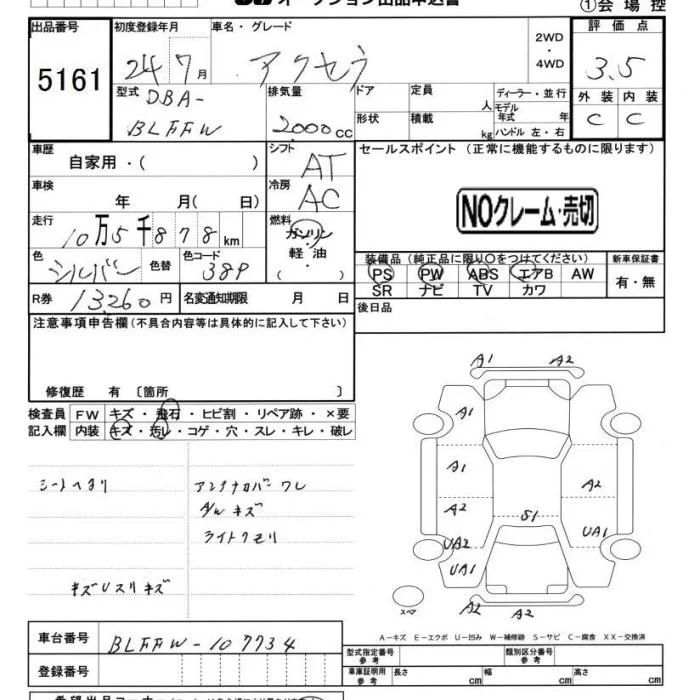 オークション出品申込書
①会場控
出品番号
5161
初度登録年月
24 7月
車名・グレード
アクセラ
2WD
・
4WD
評価点
3.5
外装 内装
C C
型式
DBA-
BLFFW
排気量
2000cc
ドア
定員
人
形状
積載
kg
ディーラー・並行
モデル
年式 年
ハンドル 左・右
車歴
自家用・( )
シフト
AT
セールスポイント (正常に機能するものに限ります)
車検
年 月( 日)
冷房
AC
NOクレーム・売切
走行
10万5千878km
燃料
ガソリン
軽油
( )
色
シルバー
色替
色コード
38P
装備品(純正品に限り○をつけてください)
PS PW ABS エアB AW
SR ナビ TV カワ
新車保証書
有・無
R券
13260円
名変通知期限 月 日
後日品
注意事項申告欄(不具合内容等は具体的に記入して下さい)
修復歴 有 〔箇所 〕
検査員
記入欄
FW キズ・飛石・ヒビ割・リペア跡・×要
内装 キズ・汚レ・コゲ・穴・スレ・キレ・破レ
シートヘタリ
アンテナカバーワレ
A/Wキズ
ライトクモリ
キズUスリキズ
A1 A2
A1
A1
A2 A2
S1
UA2 UA1
UA1
A2 A2
スペア
A-キズ E-エクボ U-凹み W-補修跡 S-サビ C-腐食 XX-交換済
車台番号
BLFFW-107734
登録番号
型式指定番号
参考
類別区分番号
参考
車庫証明用
参考
長さ cm
幅 cm
高さ cm